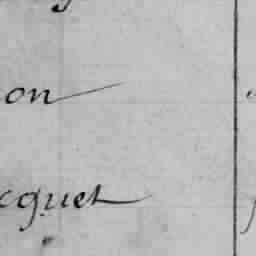 on
cquet